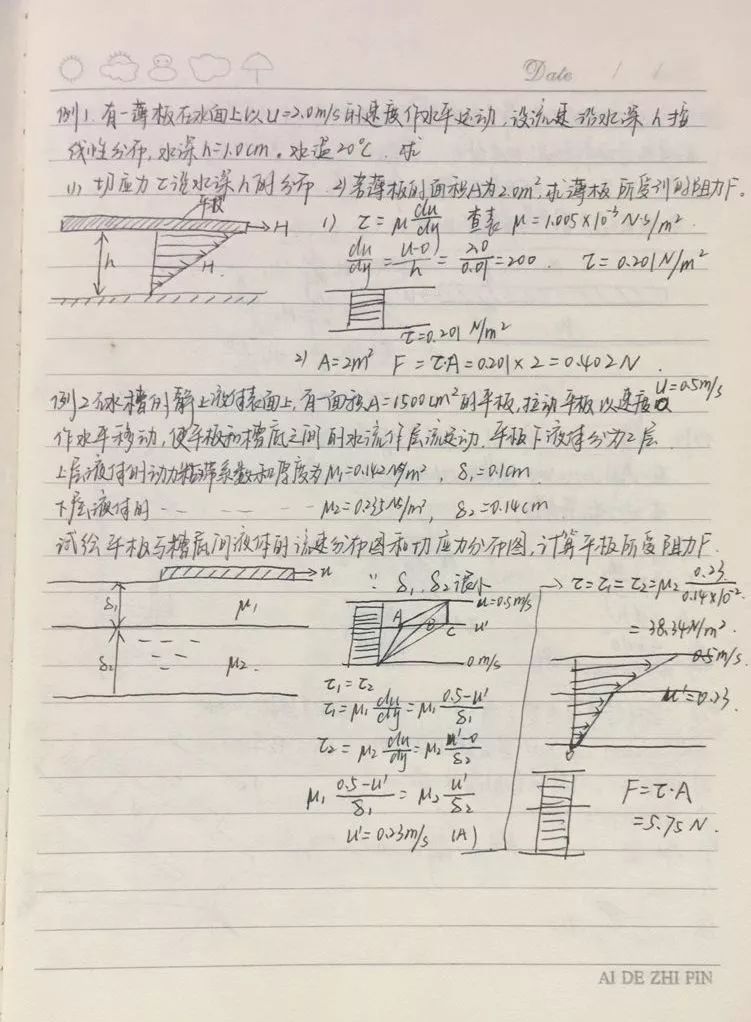 Date / /
例1. 有一薄板在水面上以u=2.0m/s的速度作水平运动,设流速沿水深h按
线性分布,水深h=1.0cm。水温20℃. 求
(1) 切应力τ沿水深h的分布. 2) 若薄板的面积A为2.0m²,求薄板所受到的阻力F。
平板
H
h
H
1) τ=μ du/dy 查表 μ=1.005×10⁻³N·s/m².
du/dy = (u-0)/h = 2.0/0.01 = 200. τ=0.201N/m²
τ=0.201N/m²
2) A=2m² F=τ·A=0.201×2=0.402N.
例2. 在水槽的静止液体表面上,有一面积A=1500cm²的平板,拉动平板以速度u=0.5m/s
作水平移动,使平板和槽底之间的水流作层流运动.平板下液体分为2层.
上层液体的动力粘滞系数和厚度为μ₁=0.142Ns/m², δ₁=0.1cm.
下层液体的 - - - - - - μ₂=0.235Ns/m², δ₂=0.14cm
试绘平板与槽底间液体的流速分布图和切应力分布图,计算平板所受阻力F.
u
δ₁ μ₁
δ₂ μ₂
∵ δ₁、δ₂很小
u=0.5m/s
A B C u'
0m/s
τ₁=τ₂
τ₁=μ₁ du/dy=μ₁ (0.5-u')/δ₁
τ₂=μ₂ du/dy=μ₂ (u'-0)/δ₂
μ₁ (0.5-u')/δ₁=μ₂ u'/δ₂
u'=0.23m/s (A)
→ τ=τ₁=τ₂=μ₂ 0.23/(0.14×10⁻²)
=38.34N/m².
0.5m/s.
u'=0.23.
0
F=τ·A
=5.75N.
AI DE ZHI PIN